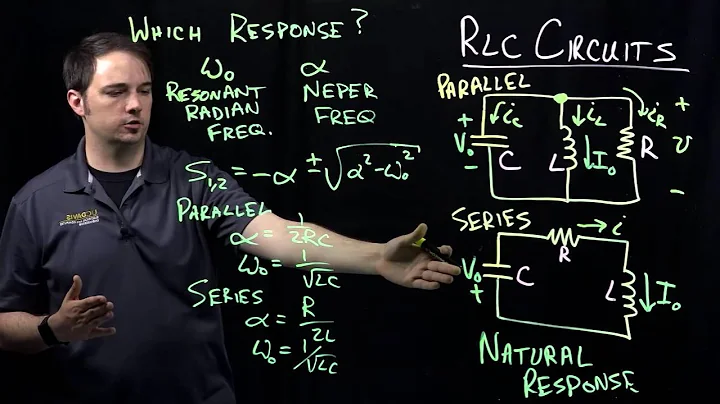 WHICH RESPONSE?
ω₀ α
RESONANT RADIAN FREQ.
NEPER FREQ
S₁,₂ = -α ± √α² - ω₀²
PARALLEL
α = 1/2RC
ω₀ = 1/√LC
SERIES
α = R/2L
ω₀ = 1/√LC
RLC CIRCUITS
PARALLEL
+ V₀ - i_c C i_L L I₀ i_R R + v -
SERIES
V₀ + C R i L I₀
NATURAL
RESPONSE